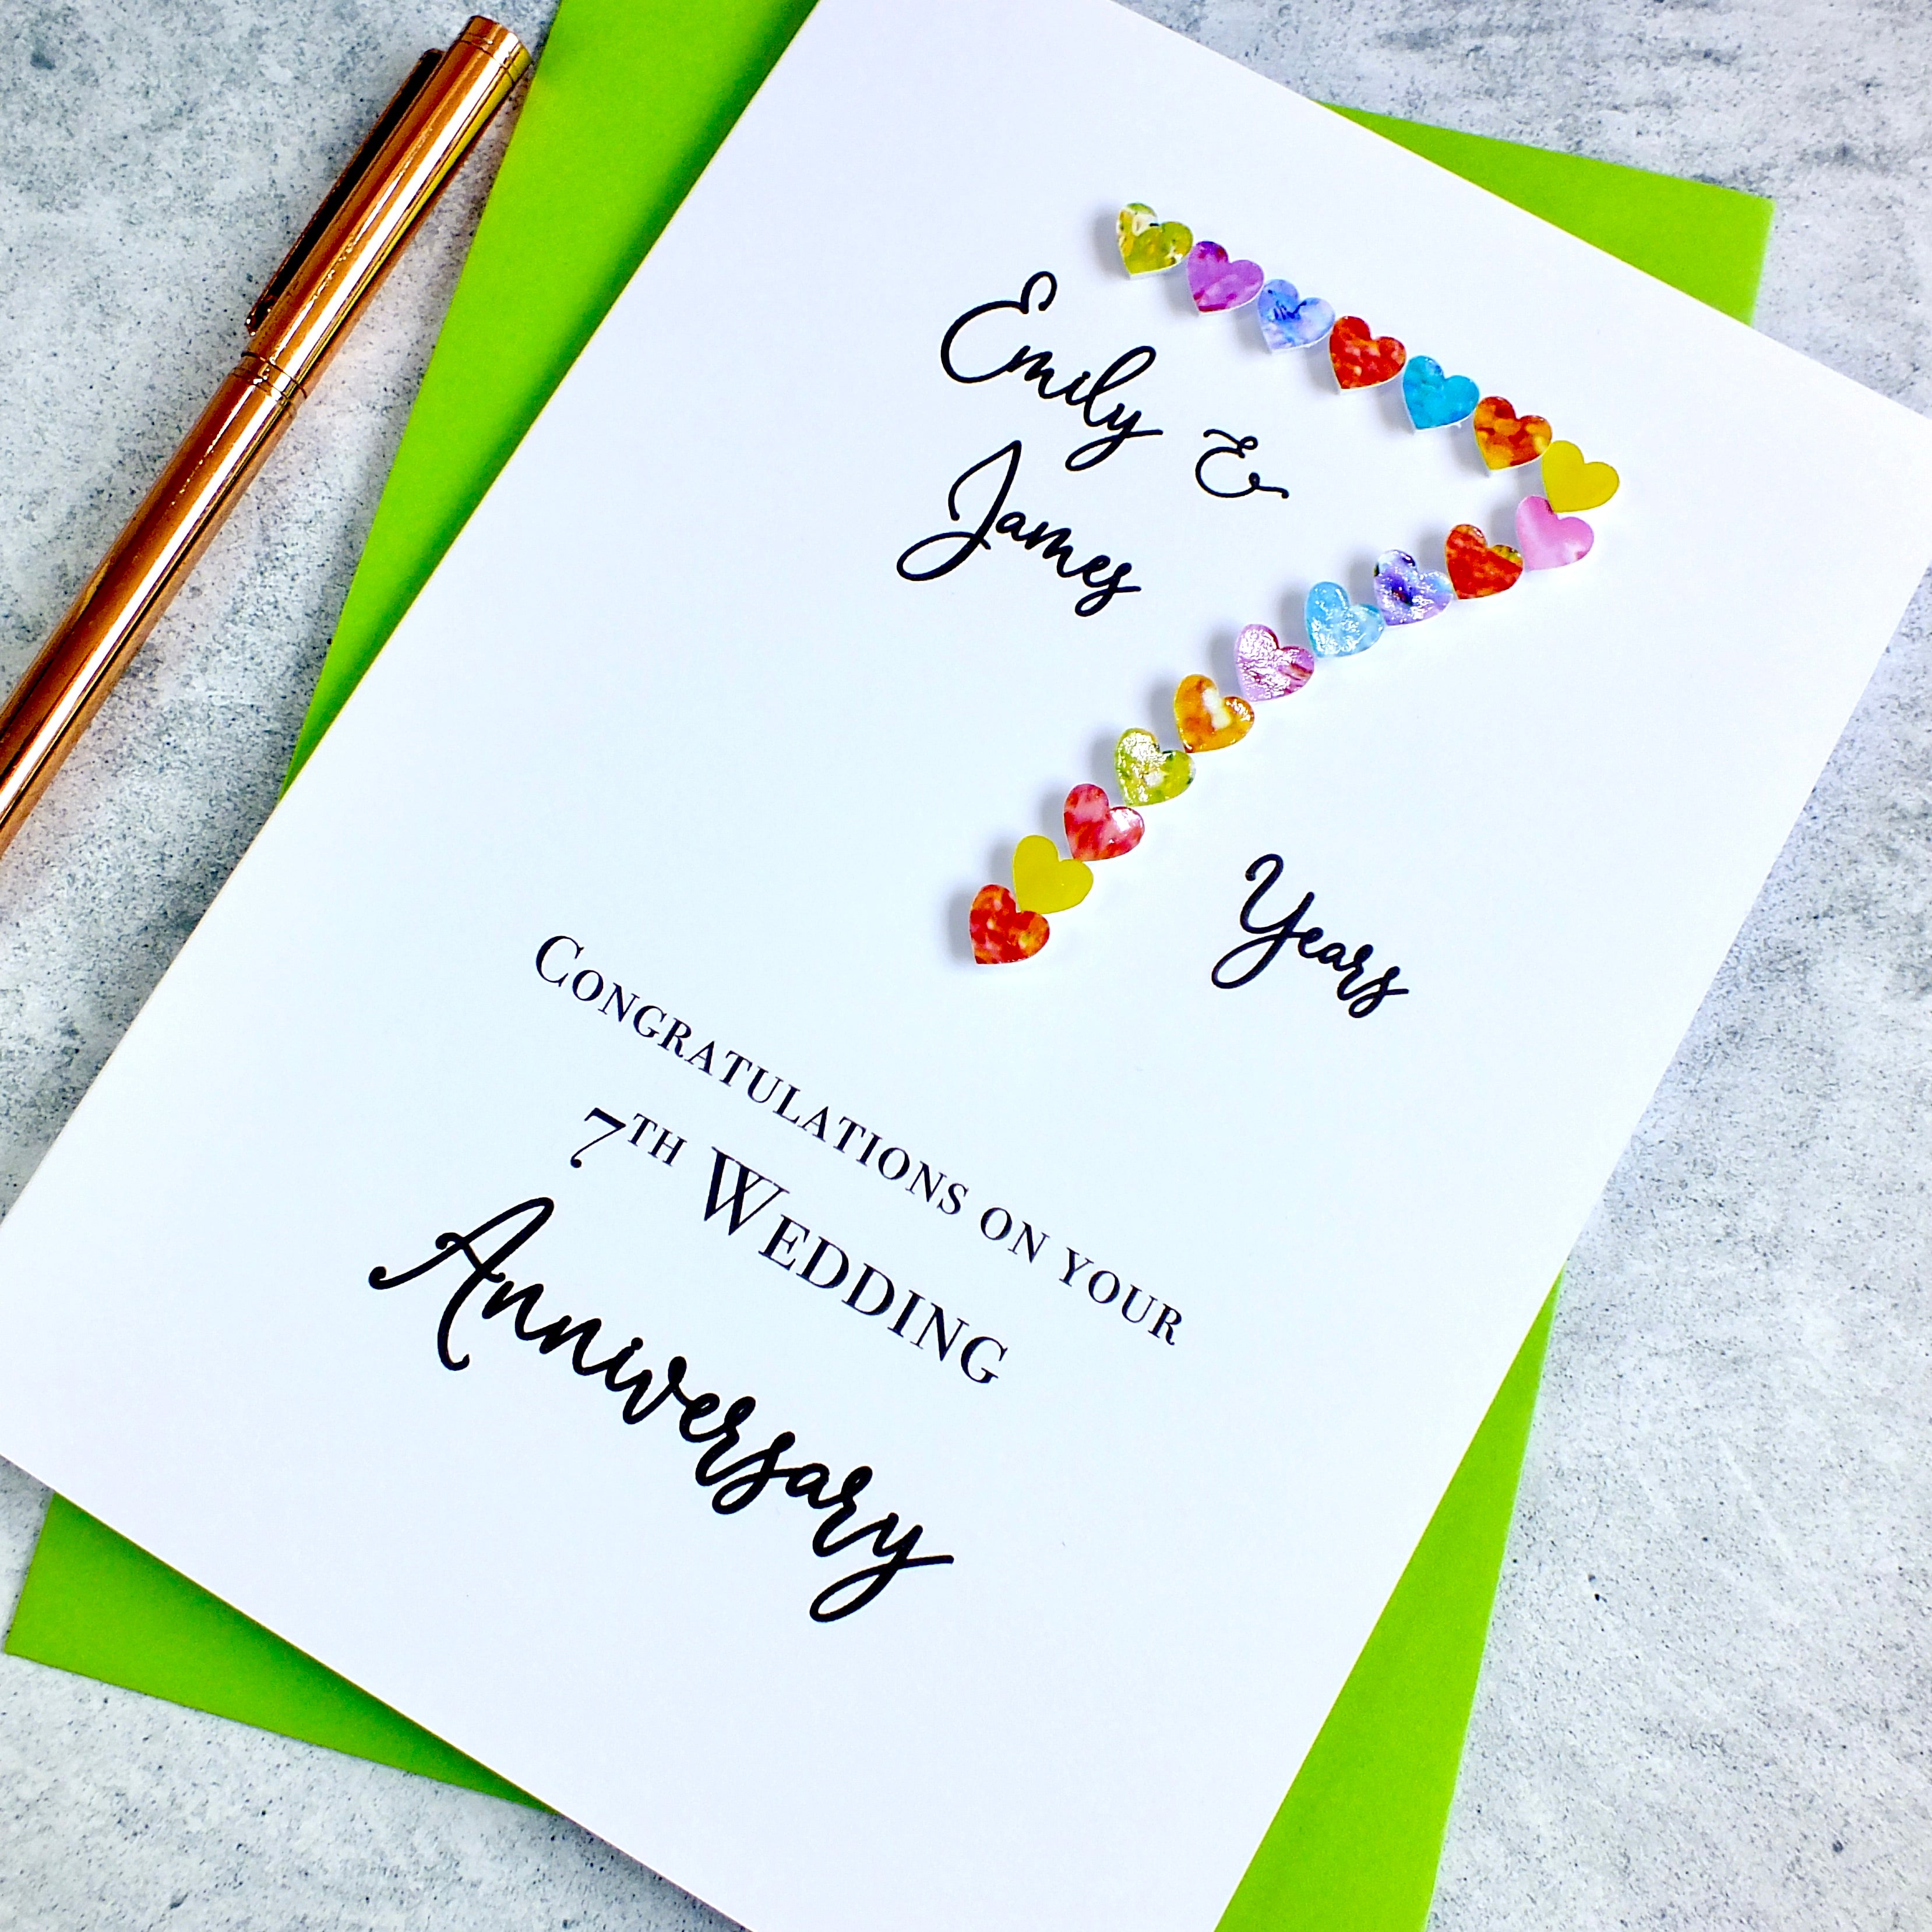 Emily &
James
7
Years
Congratulations on your
7th Wedding
Anniversary